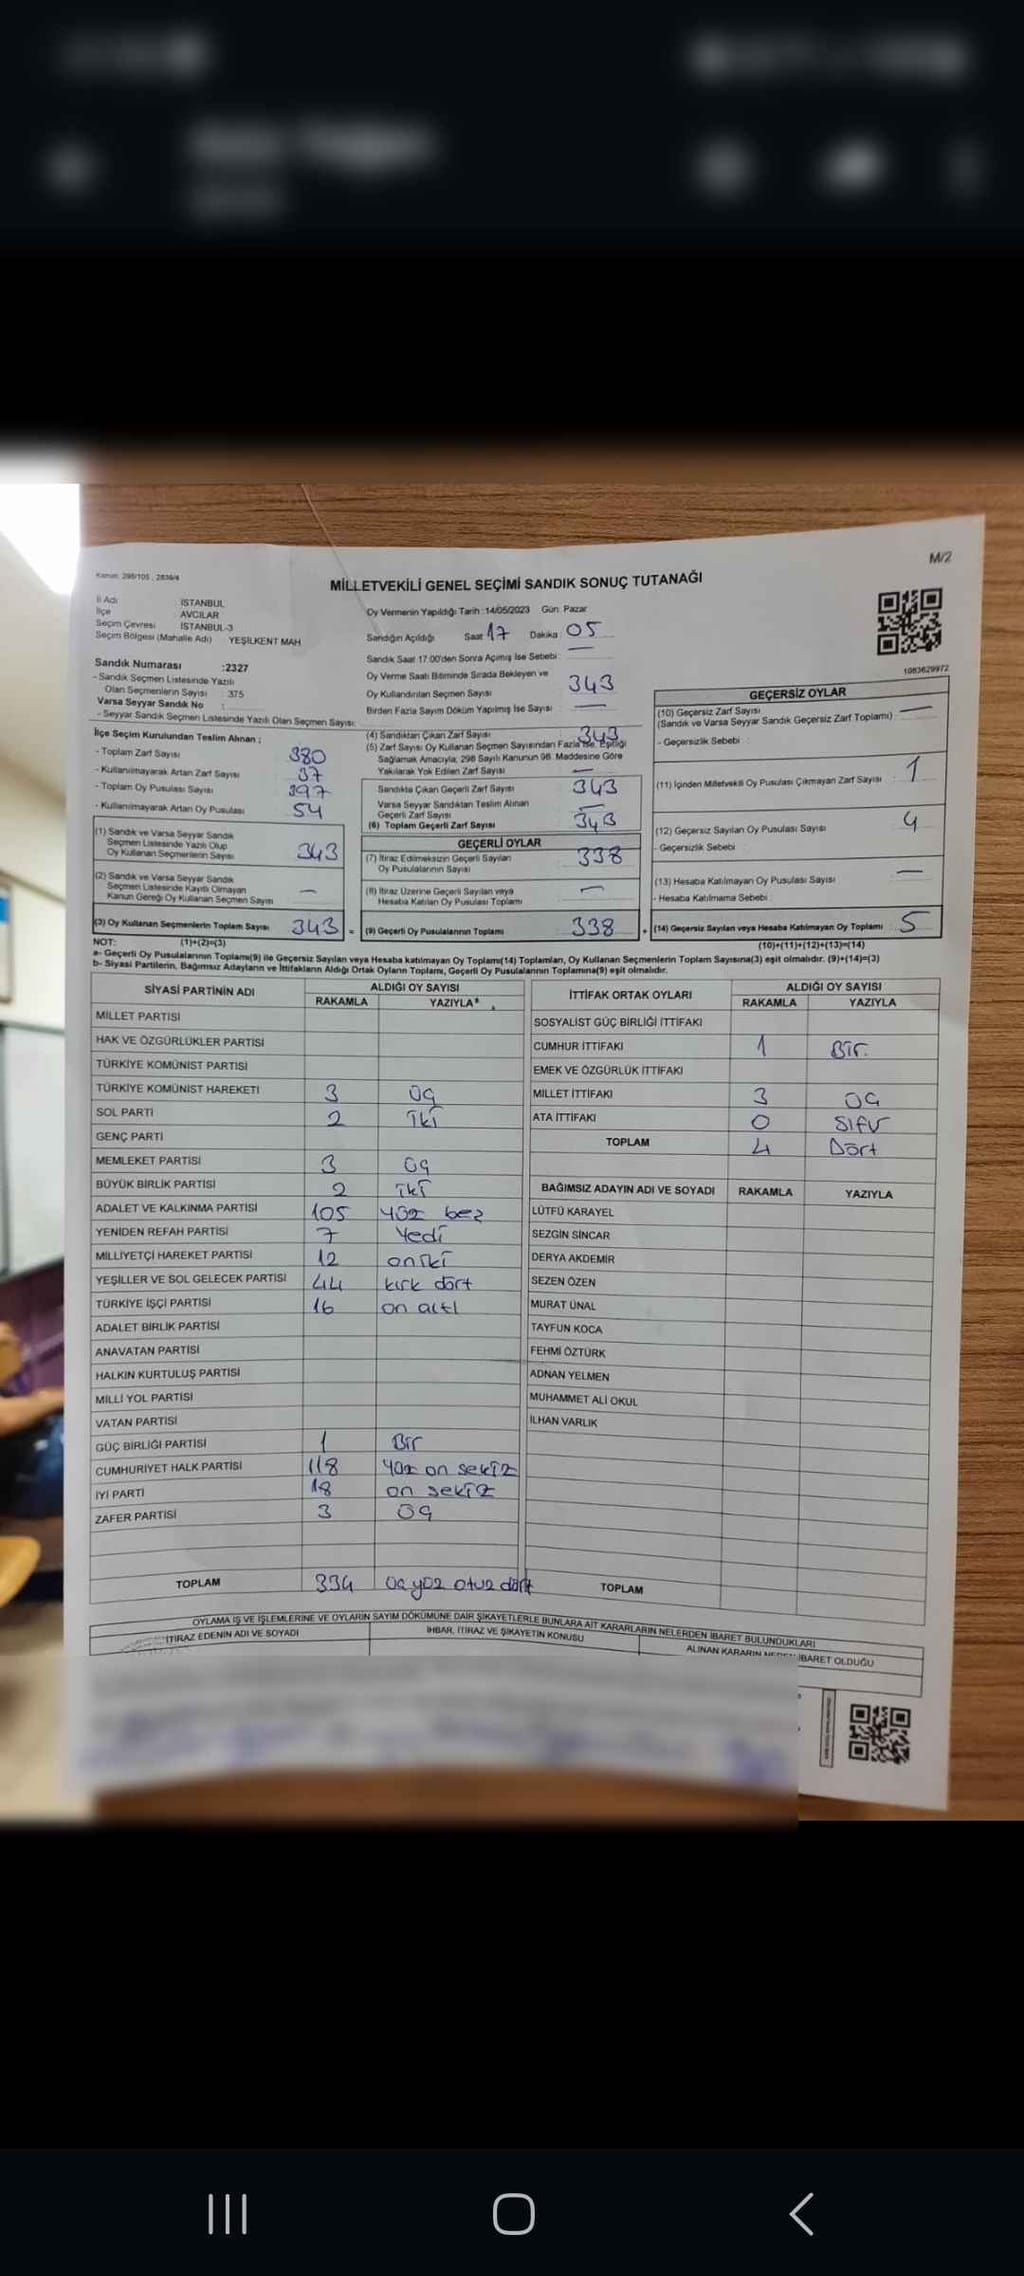 Kanun: 298/105 , 2839/4
M/2
MİLLETVEKİLİ GENEL SEÇİMİ SANDIK SONUÇ TUTANAĞI
İl Adı : İSTANBUL
İlçe : AVCILAR
Seçim Çevresi : İSTANBUL-3
Seçim Bölgesi (Mahalle Adı) YEŞİLKENT MAH
Sandık Numarası :2327
- Sandık Seçmen Listesinde Yazılı
Olan Seçmenlerin Sayısı : 375
Varsa Seyyar Sandık No :
- Seyyar Sandık Seçmen Listesinde Yazılı Olan Seçmen Sayısı:
Oy Vermenin Yapıldığı Tarih :14/05/2023 Gün: Pazar
Sandığın Açıldığı Saat 17 Dakika 05
Sandık Saat 17:00'den Sonra Açımış İse Sebebi : —
Oy Verme Saati Bitiminde Sırada Bekleyen ve
Oy Kullandırılan Seçmen Sayısı 343
Birden Fazla Sayım Döküm Yapılmış İse Sayısı : —
1083629972
İlçe Seçim Kurulundan Teslim Alınan ;
- Toplam Zarf Sayısı 380
- Kullanılmayarak Artan Zarf Sayısı 37
- Toplam Oy Pusulası Sayısı 397
- Kullanılmayarak Artan Oy Pusulası 54
(1) Sandık ve Varsa Seyyar Sandık
Seçmen Listesinde Yazılı Olup
Oy Kullanan Seçmenlerin Sayısı 343
(2) Sandık ve Varsa Seyyar Sandık
Seçmen Listesinde Kayıtlı Olmayan
Kanun Gereği Oy Kullanan Seçmen Sayısı —
(3) Oy Kullanan Seçmenlerin Toplam Sayısı 343 =
(4) Sandıktan Çıkan Zarf Sayısı 343
(5) Zarf Sayısı Oy Kullanan Seçmen Sayısından Fazla İse, Eşitliği
Sağlamak Amacıyla; 298 Sayılı Kanunun 98. Maddesine Göre
Yakılarak Yok Edilen Zarf Sayısı —
Sandıkta Çıkan Geçerli Zarf Sayısı 343
Varsa Seyyar Sandıktan Teslim Alınan
Geçerli Zarf Sayısı —
(6) Toplam Geçerli Zarf Sayısı 343
GEÇERLİ OYLAR
(7) İtiraz Edilmeksizin Geçerli Sayılan
Oy Pusulalarının Sayısı 338
(8) İtiraz Üzerine Geçerli Sayılan veya
Hesaba Katılan Oy Pusulası Toplamı —
(9) Geçerli Oy Pusulalarının Toplamı 338 +
GEÇERSİZ OYLAR
(10) Geçersiz Zarf Sayısı
(Sandık ve Varsa Seyyar Sandık Geçersiz Zarf Toplamı) : —
- Geçersizlik Sebebi :
(11) İçinden Milletvekili Oy Pusulası Çıkmayan Zarf Sayısı : 1
(12) Geçersiz Sayılan Oy Pusulası Sayısı : 4
- Geçersizlik Sebebi :
(13) Hesaba Katılmayan Oy Pusulası Sayısı : —
- Hesaba Katılmama Sebebi :
(14) Geçersiz Sayılan veya Hesaba Katılmayan Oy Toplamı : 5
NOT: (1)+(2)=(3) (10)+(11)+(12)+(13)=(14)
a- Geçerli Oy Pusulalarının Toplamı(9) ile Geçersiz Sayılan veya Hesaba katılmayan Oy Toplamı(14) Toplamları, Oy Kullanan Seçmenlerin Toplam Sayısına(3) eşit olmalıdır. (9)+(14)=(3)
b- Siyasi Partilerin, Bağımsız Adayların ve İttifakların Aldığı Ortak Oyların Toplamı, Geçerli Oy Pusulalarının Toplamına(9) eşit olmalıdır.
SİYASİ PARTİNİN ADI ALDIĞI OY SAYISI
RAKAMLA YAZIYLA
MİLLET PARTİSİ
HAK VE ÖZGÜRLÜKLER PARTİSİ
TÜRKİYE KOMÜNİST PARTİSİ
TÜRKİYE KOMÜNİST HAREKETİ 3 üç
SOL PARTİ 2 iki
GENÇ PARTİ
MEMLEKET PARTİSİ 3 üç
BÜYÜK BİRLİK PARTİSİ 2 iki
ADALET VE KALKINMA PARTİSİ 105 yüz beş
YENİDEN REFAH PARTİSİ 7 Yedi
MİLLİYETÇİ HAREKET PARTİSİ 12 oniki
YEŞİLLER VE SOL GELECEK PARTİSİ 44 kırk dört
TÜRKİYE İŞÇİ PARTİSİ 16 on altı
ADALET BİRLİK PARTİSİ
ANAVATAN PARTİSİ
HALKIN KURTULUŞ PARTİSİ
MİLLİ YOL PARTİSİ
VATAN PARTİSİ
GÜÇ BİRLİĞİ PARTİSİ 1 Bir
CUMHURİYET HALK PARTİSİ 118 yüz on sekiz
İYİ PARTİ 18 on sekiz
ZAFER PARTİSİ 3 üç
TOPLAM 334 üç yüz otuz dört
İTTİFAK ORTAK OYLARI ALDIĞI OY SAYISI
RAKAMLA YAZIYLA
SOSYALİST GÜÇ BİRLİĞİ İTTİFAKI
CUMHUR İTTİFAKI 1 Bir.
EMEK VE ÖZGÜRLÜK İTTİFAKI
MİLLET İTTİFAKI 3 üç
ATA İTTİFAKI 0 sıfır
TOPLAM 4 Dört
BAĞIMSIZ ADAYIN ADI VE SOYADI RAKAMLA YAZIYLA
LÜTFÜ KARAYEL
SEZGİN SİNCAR
DERYA AKDEMİR
SEZEN ÖZEN
MURAT ÜNAL
TAYFUN KOCA
FEHMİ ÖZTÜRK
ADNAN YELMEN
MUHAMMET ALİ OKUL
İLHAN VARLIK
TOPLAM
OYLAMA İŞ VE İŞLEMLERİNE VE OYLARIN SAYIM DÖKÜMÜNE DAİR ŞİKAYETLERLE BUNLARA AİT KARARLARIN NELERDEN İBARET BULUNDUKLARI
İTİRAZ EDENİN ADI VE SOYADI İHBAR, İTİRAZ VE ŞİKAYETİN KONUSU ALINAN KARARIN NEDEN İBARET OLDUĞU